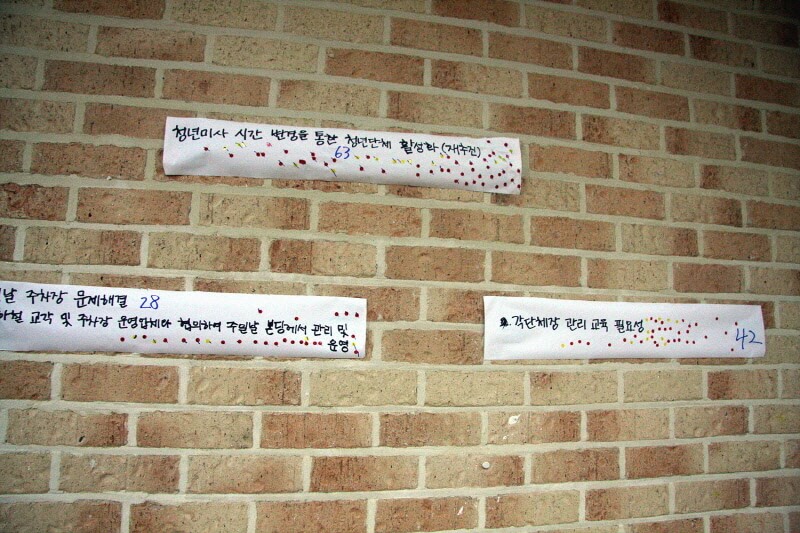 청년미사 시간 변경을 통한 청년단체 활성화 (재추진)
63
날 주차장 문제해결 28
하철 교각 및 주차장 운영업체와 협의하여 주일날 본당에서 관리 및
운영
각단체장 관리 교육 필요성
42